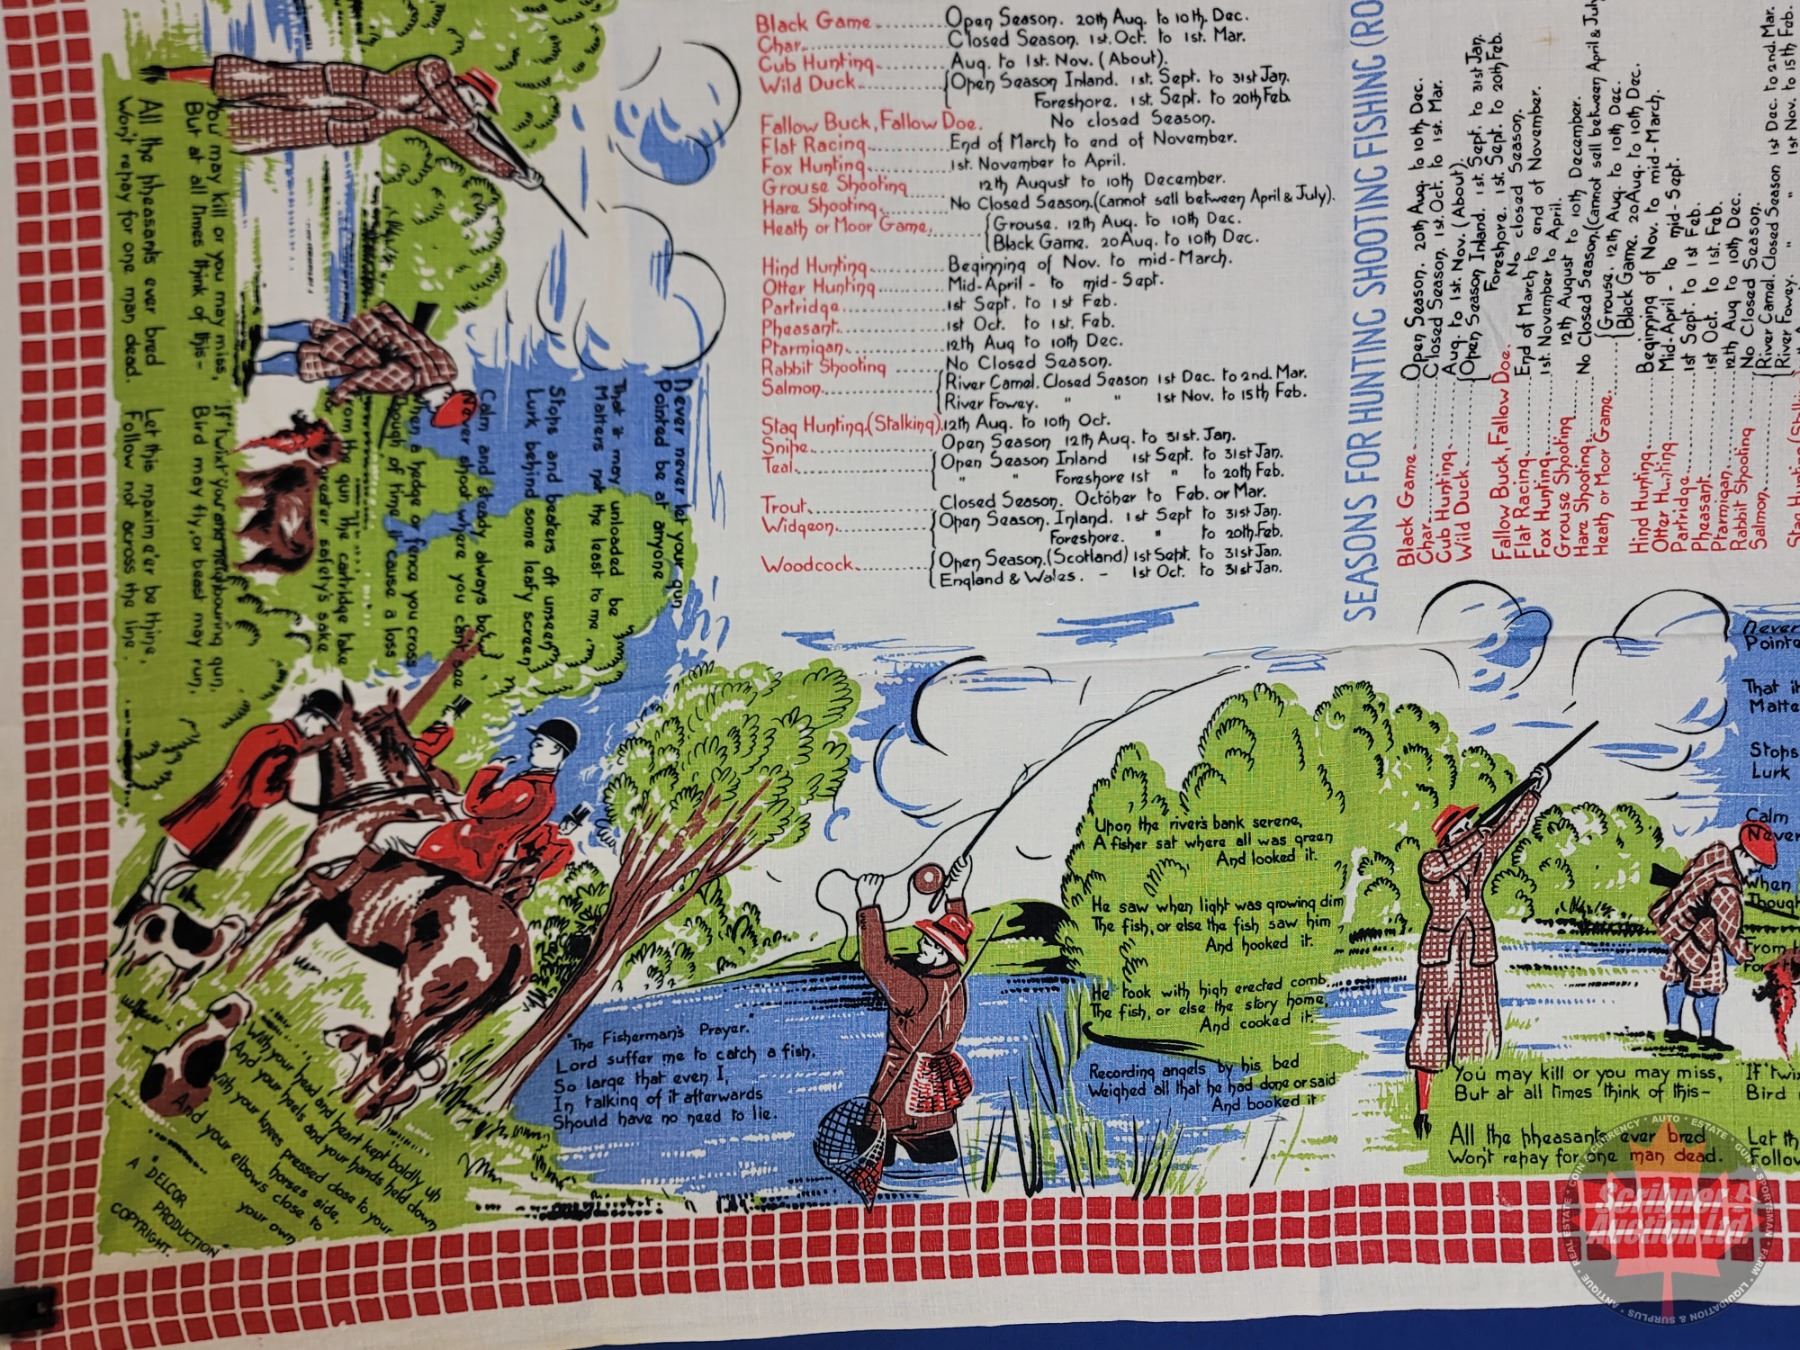 Black Game Open Season. 20th Aug. to 10th Dec.
Char Closed Season. 1st. Oct. to 1st. Mar.
Cub Hunting Aug. to 1st. Nov. (About).
Wild Duck Open Season Inland. 1st. Sept. to 31st Jan.
Foreshore. 1st. Sept. to 20th Feb.
Fallow Buck, Fallow Doe. No closed Season.
Flat Racing End of March to end of November.
Fox Hunting 1st. November to April.
Grouse Shooting 12th August to 10th December.
Hare Shooting No Closed Season. (Cannot sell between April & July).
Heath or Moor Game. Grouse. 12th Aug. to 10th Dec.
Black Game. 20 Aug. to 10th Dec.
Hind Hunting Beginning of Nov. to mid-March.
Otter Hunting Mid-April - to mid-Sept.
Partridge 1st Sept. to 1st Feb.
Pheasant 1st Oct. to 1st. Feb.
Ptarmigan 12th Aug to 10th Dec.
Rabbit Shooting No Closed Season.
Salmon River Camel. Closed Season 1st Dec. to 2nd. Mar.
River Fowey. " " 1st Nov. to 15th Feb.
Stag Hunting (Stalking) 12th Aug. to 10th Oct.
Snipe Open Season 12th Aug. to 31st. Jan.
Teal Open Season Inland 1st Sept. to 31st Jan.
" " Foreshore 1st " to 20th Feb.
Trout Closed Season. October to Feb. or Mar.
Widgeon Open Season. Inland. 1st Sept to 31st Jan.
Foreshore. " to 20th Feb.
Woodcock Open Season. (Scotland) 1st Sept. to 31st Jan.
England & Wales. - 1st Oct. to 31st Jan.
SEASONS FOR HUNTING SHOOTING FISHING (RO
Black Game Open Season. 20th Aug. to 10th Dec.
Char Closed Season. 1st. Oct. to 1st. Mar.
Cub Hunting Aug. to 1st. Nov. (About).
Wild Duck Open Season Inland. 1st. Sept. to 31st Jan.
Foreshore. 1st. Sept. to 20th Feb.
Fallow Buck, Fallow Doe. No closed Season.
Flat Racing End of March to end of November.
Fox Hunting 1st. November to April.
Grouse Shooting 12th August to 10th December.
Hare Shooting No Closed Season. (Cannot sell between April & July
Heath or Moor Game. Grouse. 12th Aug. to 10th Dec.
Black Game. 20 Aug. to 10th Dec.
Hind Hunting Beginning of Nov. to mid-March.
Otter Hunting Mid-April - to mid-Sept.
Partridge 1st Sept. to 1st Feb.
Pheasant 1st Oct. to 1st. Feb.
Ptarmigan 12th Aug to 10th Dec.
Rabbit Shooting No Closed Season.
Salmon River Camel. Closed Season 1st Dec. to 2nd. Mar.
River Fowey. " " 1st Nov. to 15th Feb.
Stag Hunting
Never never let your gun
Pointed be at anyone
That it may unloaded be
Matters not the least to me,
Stops and beaters oft unseen
Lurk behind some leafy screen
Calm and steady always be
Never shoot where you can't see
When a hedge or fence you cross
Though of time it cause a loss
From the gun the cartridge take
For greater safety's sake
You may kill or you may miss,
But at all times think of this-
All the pheasants ever bred
Won't repay for one man dead.
If 'twixt you and neighbouring gun,
Bird may fly, or beast may run,
Let this maxim e'er be thine,
Follow not across the line.
With your head and heart kept boldly up
And your heels and your hands held down
With your knees pressed close to your
horses side,
And your elbows close to
your own
A "DELCOR PRODUCTION"
COPYRIGHT.
"The Fisherman's Prayer."
Lord suffer me to catch a fish,
So large that even I,
In talking of it afterwards
Should have no need to lie.
Upon the river's bank serene,
A fisher sat where all was green
And looked it.
He saw when light was growing dim
The fish, or else the fish saw him
And hooked it.
He took with high erected comb,
The fish, or else the story home,
And cooked it.
Recording angels by his bed
Weighed all that he had done or said
And booked it
Never
Pointe
That it
Matte
Stops
Lurk
Calm
Never
When
Though
From t
For
You may kill or you may miss,
But at all times think of this-
All the pheasants ever bred
Won't repay for one man dead.
If 'twix
Bird
Let th
Follow
Scribner
Auction Ltd.
COIN · CURRENCY · AUTO · ESTATE · GUN & SPORTSMAN · FARM · LIQUIDATION & SURPLUS · ANTIQUE · REAL ESTATE